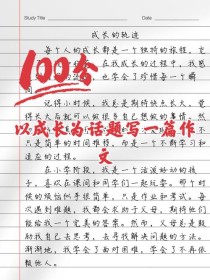 Study Title
Date
成长的轨迹
每个人的成长都是一个独特的旅程，
在我成长的过程中，我感
也学会了珍惜每一个瞬
间。
100分
记得小时候，我总是期待快点长大，觉
得长大后就可以做很多自己想做的事情。然
以成长为话题写一篇作
文
只是简单的时间推移，而是一个不断学习和
适应的过程。
在小学阶段，我是一个活泼好动的孩
子，喜欢在课间和同学们一起玩耍。那个时
候的烦恼似乎很简单，只是作业和考试。每
次遇到难题，我都会求助于父母，期待他们
能给我一个完美的答案。然而，父母总是鼓
励我自己去思考，去寻找解决问题的方法。
渐渐地，我学会了面对困难，学会了不再依
赖他人。